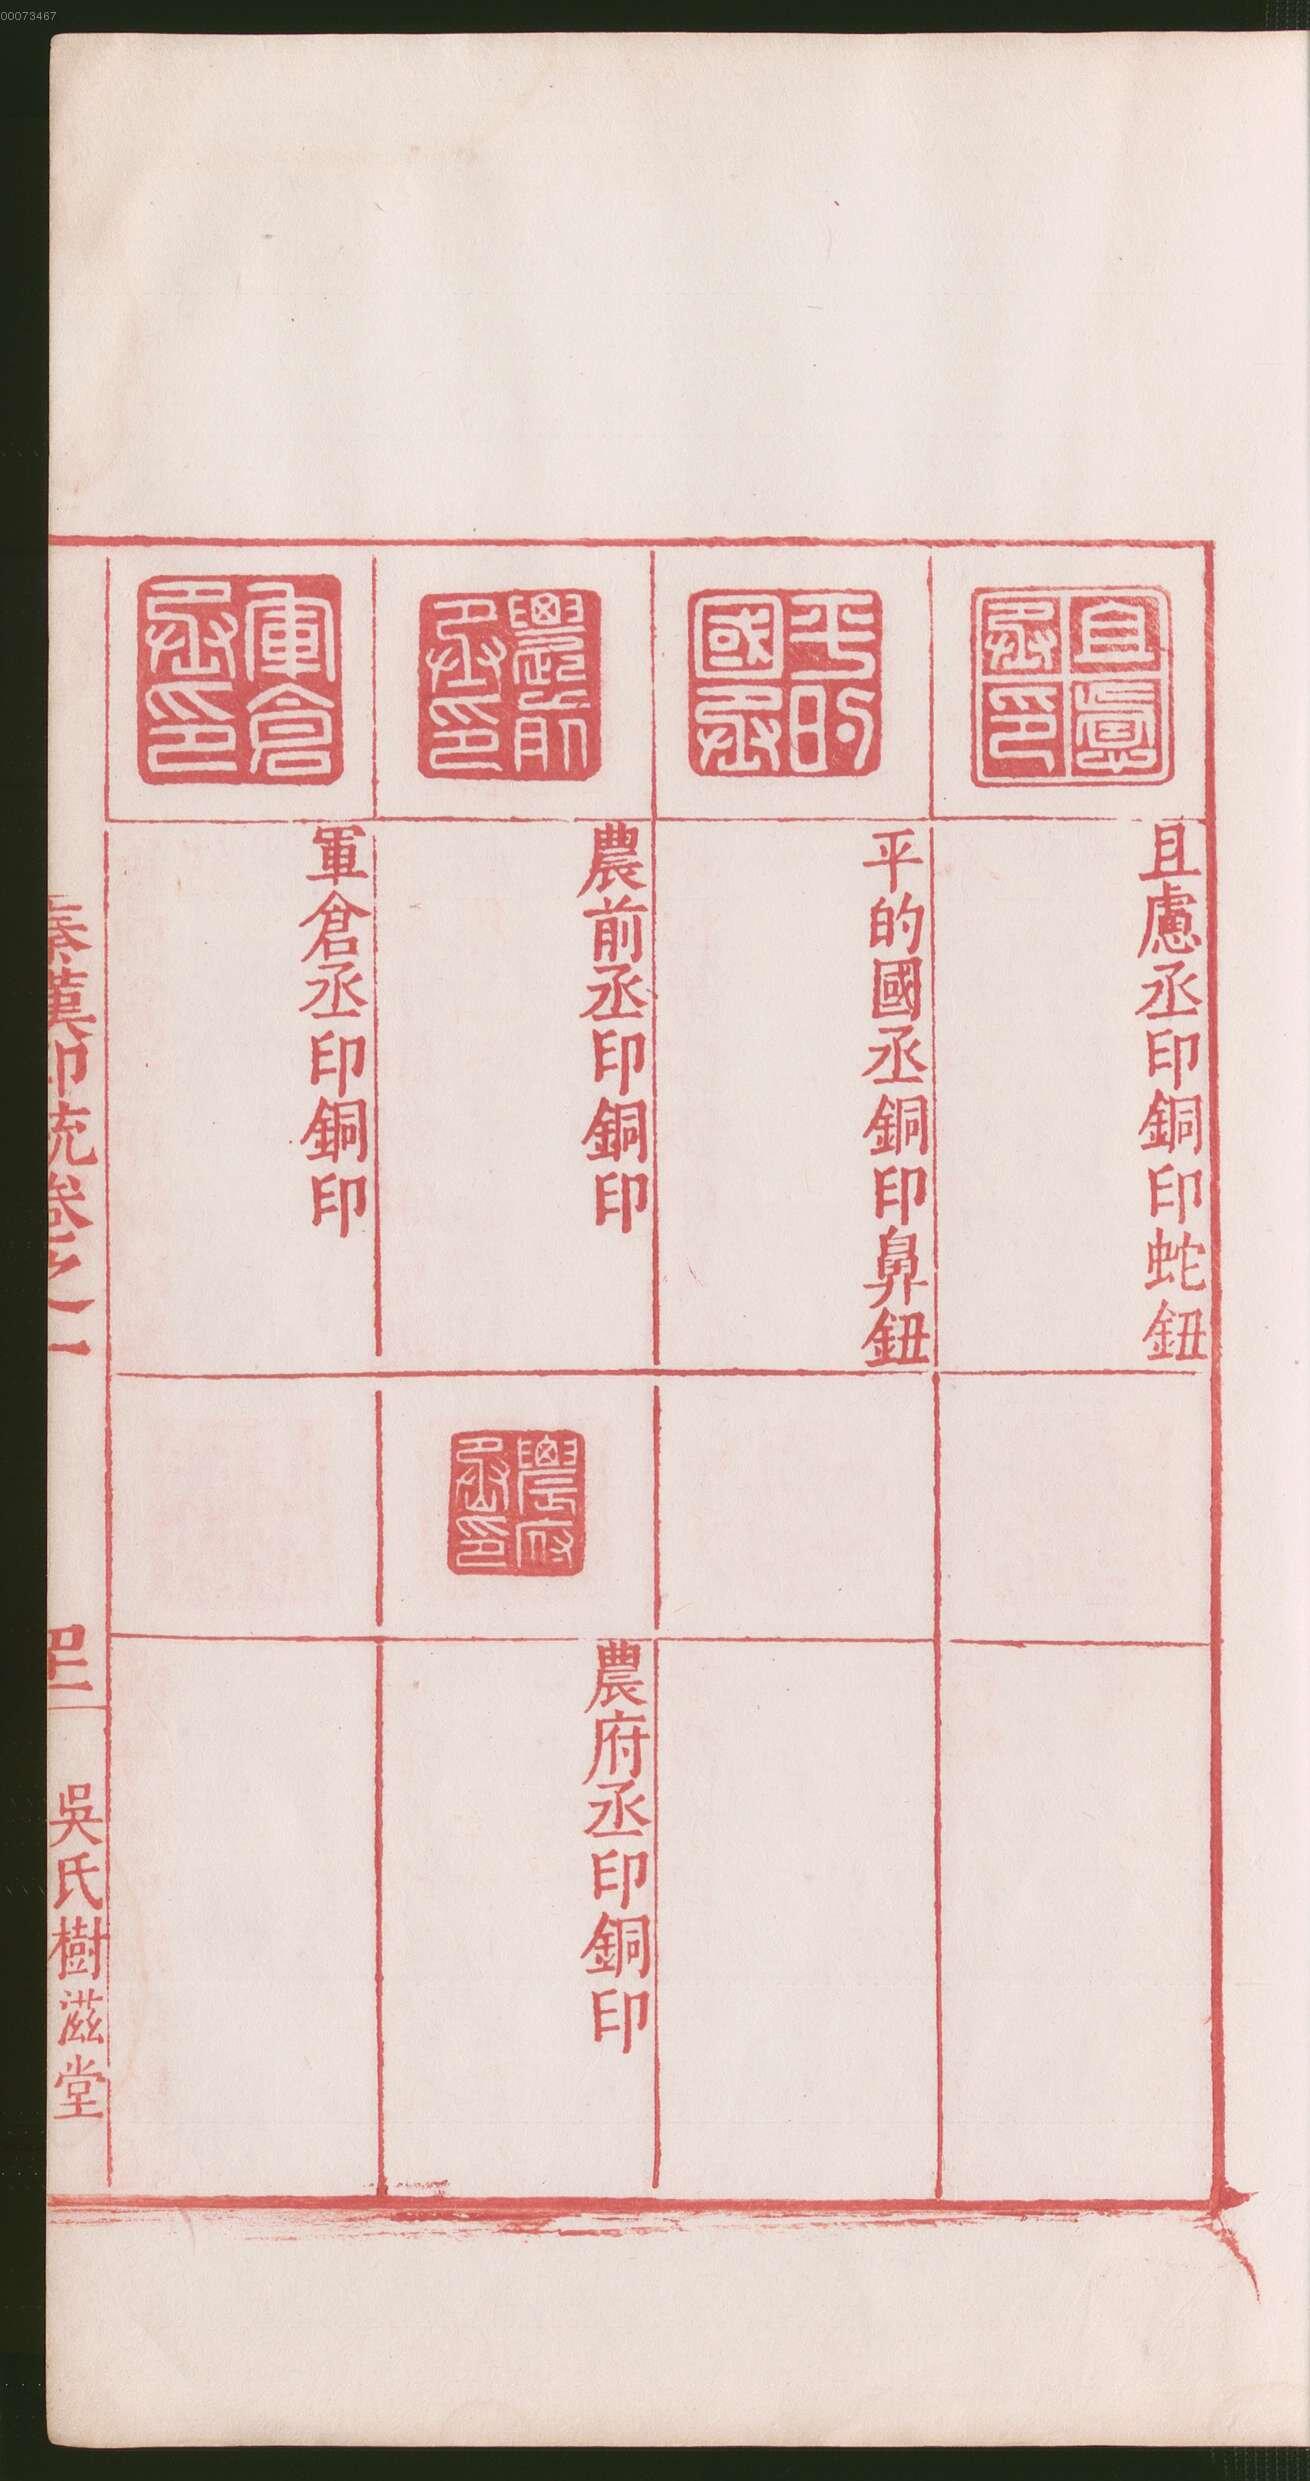 00073467
且慮丞印
且慮丞印銅印蛇鈕
平的國丞
平的國丞銅印鼻鈕
農前丞印
農前丞印銅印
農府丞印
農府丞印銅印
軍倉丞印
軍倉丞印銅印
秦漢印統卷之一
四十二
吳氏樹滋堂